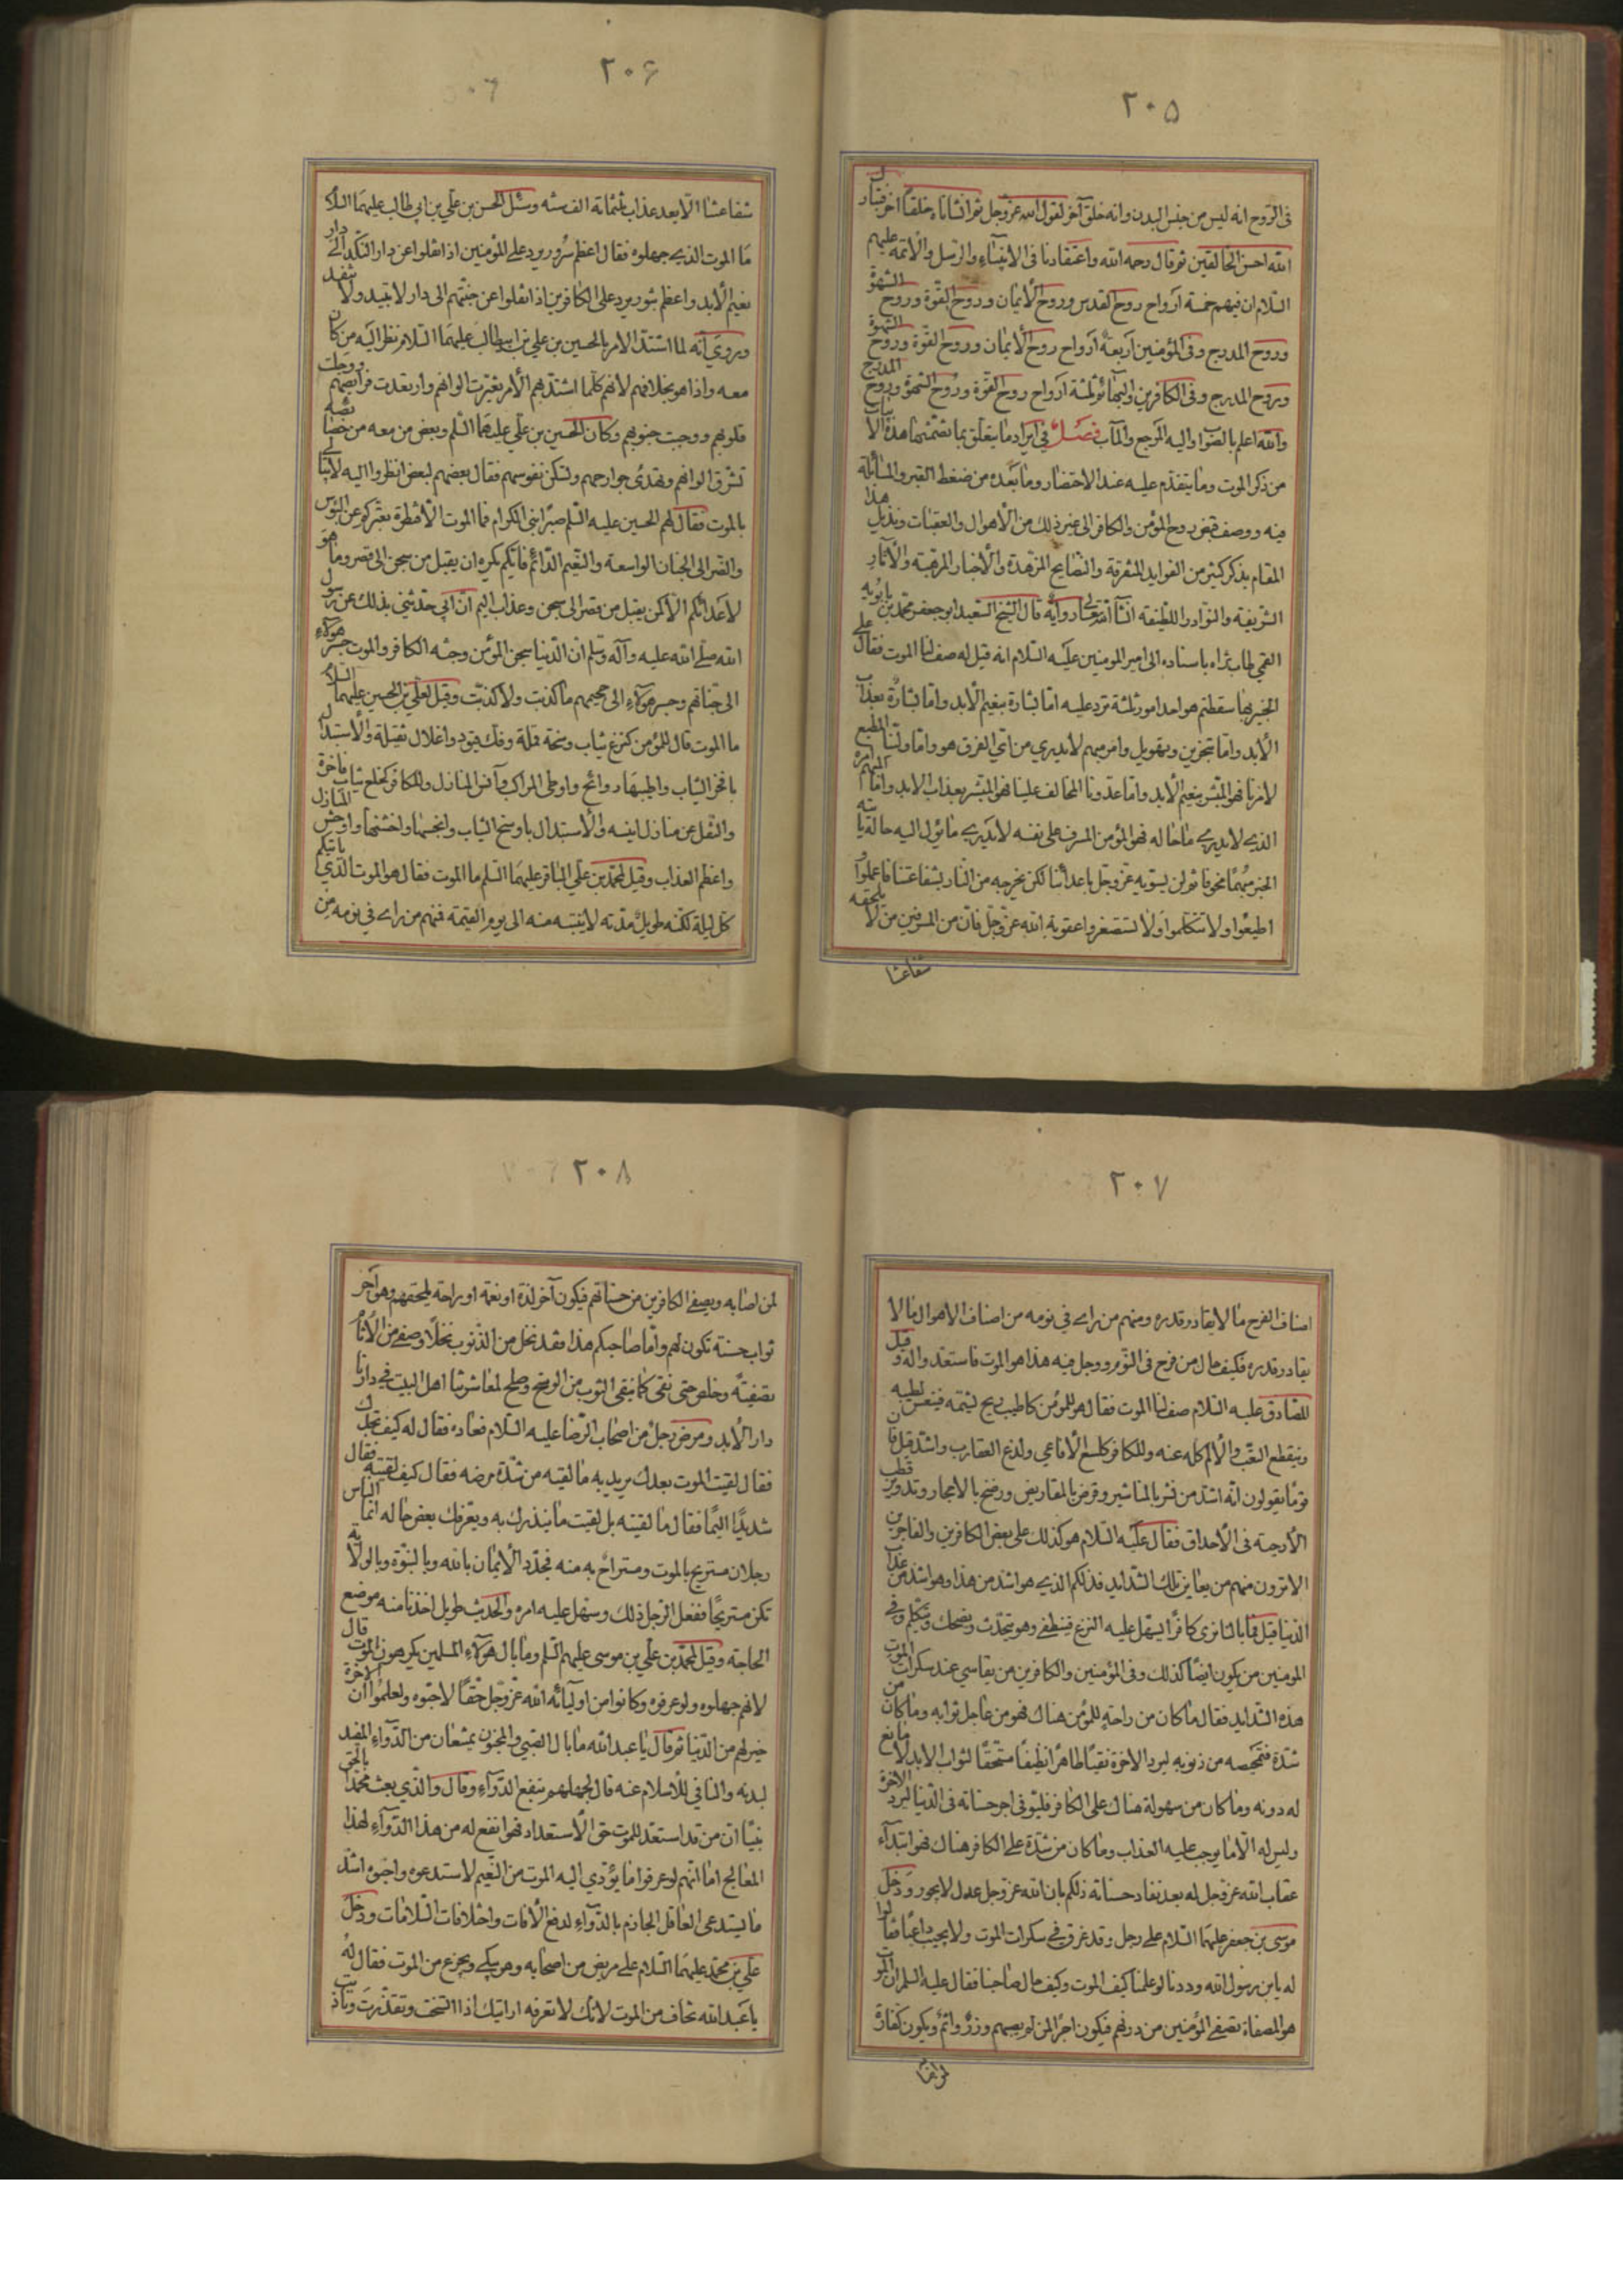 ٢٠٥
فى الرّوح انه ليس من جنس البدن وانه خلق آخر لقول الله عزّ وجلّ ثم انشاناه خلقاً آخر فتبارك
الله احسن الخالقين ثم قال رحمه الله واعتقادنا فى الانبياء والرسل والائمة عليهم
السّلام ان فيهم خمسة ارواح روح القدس وروح الأيمان وروح القوّة وروح الشهوة
وروح المدرج وفى المؤمنين اربعة ارواح روح الأيمان وروح القوّة وروح الشهوة
وروح المدرج وفى الكافرين والبهائم ثلثة ارواح روح القوّة وروح الشهوة وروح المدرج
والله اعلم بالصّواب واليه المرجع والمآب فصل فى ايراد ما يتعلّق بما تضمّنها هذه الأبيات
من ذكر الموت وما يتقدّم عليه عند الاحتضار وما بعده من ضغط القبر والمسائلة
فيه ووصف قبض روح المؤمن والكافر الى غير ذلك من الأهوال والعقبات ونذيل هذا
المقام بذكر كثير من الفوايد المتفرقة والنصايح المزهّدة والأخبار المرغبة والآثار
الشريفة والنّوادر اللطيفة انشآ الله تعالى رواية قال الشيخ السّعيد ابو جعفر محمّد بن بابويه
القمى طاب ثراه باسناده الى امير المومنين عليه السّلام انه قيل له صف لنا الموت فقال على
الخبير بها سقطتم هو احد امور ثلثة ترد عليه امّا بشارة بنعيم الأبد وامّا بشارة بعذاب
الأبد وامّا تحزين وتهويل وامر مبهم لا يدرى من اىّ الفرق هو وامّا ولينا المطيع
لامرنا فهو المبشّر بنعيم الأبد وامّا عدونا المخالف علينا فهو المبشر بعذاب الابد وامّا المبهم امره
الذى لا يدرى ما حاله فهو المؤمن المسرف على نفسه لا يدرى ما يؤل اليه حاله يأتيه
الخبر مبهمًا مخوفا ثم لن يسويه عزّ وجلّ باعدائنا لكن يخرجه من النّار بشفاعتنا فاعملوا و
اطيعوا ولا تتكلموا ولا تستصغروا عقوبة الله عزّ وجلّ فانّ من المسرفين من لا يلحقه
شفاعتنا
٢٠۶
شفاعتنا الّا بعد عذاب ثلثمائة الف سنه وسئل الحسن بن على بن ابى طالب عليهما السلام
ما الموت الذى جهلوه فقال اعظم سرور يرد على المؤمنين اذا نقلوا عن دار النّكد الى دار
نعيم الأبد واعظم ثبور يرد على الكافرين اذا نقلوا عن جنتهم الى دار لا تبيد ولا تنفد
وروى انّه لما اشتدّ الامر بالحسين بن على بن ابيطالب عليهما السّلام نظر اليه من كان
معه واذا هو بخلافهم لانهم كلما اشتدّ بهم الأمر تغيّرت الوانهم وارتعدت فرائصهم ووجلت
قلوبهم ووجبت جنوبهم وكان الحسين بن على عليهما السّلم وبعض من معه من خصائصه
تشرق الوانهم وتهدئ جوارحهم وتسكن نفوسهم فقال بعضهم لبعض انظروا اليه لا يبالى
بالموت فقال لهم الحسين عليه السّلم صبرًا بنى الكرام فما الموت الّا قنطرة يعبّركم عن البؤس
والضّر الى الجنان الواسعة والنّعيم الدّائم فايّكم يكره ان ينتقل من سجن الى قصر وما هو
لاعدائكم الّا كمن ينتقل من قصر الى سجن وعذاب اليم انّ ابى حدّثنى بذلك عن رسول
الله صلّى الله عليه وآله وسلّم ان الدّنيا سجن المؤمن وجنّه الكافر والموت جسر هؤلاء
الى جنّاتهم وجسر هؤلاء الى جحيمهم ما كذبت ولا كذبّت وقيل لعلىّ بن الحسين عليهما السلام
ما الموت قال للمؤمن كنزع ثياب وسخة قملة وفك قيود واغلال ثقيلة والأستبدال
بافخر الثياب واطيبها روائح واوطى المراكب وآنس المنازل وللكافر كخلع ثياب فاخرة
والنّقل عن منازل انيسه والأستبدال باوسخ الثياب واخشنها واوحش المنازل
واعظم العذاب وقيل لمحمّد بن على الباقر عليهما السّلم ما الموت فقال هو الموت الّذى ياتيكم
كل ليلة لكنّه طويل مدّته لا ينتبه منه الى يوم القيمة فمنهم من راى فى نومه من
٢٠٧
اصناف الفرح ما لا يقادر قدره ومنهم من راى فى نومه من اصناف الاهوال ما لا
يقادر قدره فكيف حال من فرح فى النّوم ووجل فيه هذا هو الموت فاستعدّوا له و قيل
للصّادق عليه السّلام صف لنا الموت فقال هو للمؤمن كاطيب ريح يشمّه فينعس لطيبه
وينقطع التعّب والألم كله عنه وللكافر كلسع الأفاعى ولدغ العقارب واشدّ قيل فان
قومًا يقولون انّه اشدّ من نشر بالمناشير وقرض بالمقاريض ورضخ بالاحجار وتدوير قطب
الأرحية فى الأحداق فقال عليه السّلام هو كذلك على بعض الكافرين والفاجرين
الا ترون منهم من يعاين تلك الشّدايد فذلكم الذى هو اشد من هذا وهو اشدّ من عذاب
الدّنيا قيل فما بالنا نرى كافرًا يسهل عليه النزع فينطفى وهو يتحدّث ويضحك ويتكلم وفى
المومنين من يكون ايضًا كذلك وفى المؤمنين والكافرين من يقاسى عند سكرات الموت
هذه الشدايد فقال ما كان من راحة للمؤمن هناك فهو من عاجل ثوابه وما كان من
شدّة فتمحيصه من ذنوبه ليرد الآخرة نقيًا طاهرًا نظيفًا مستحقًا لثواب الابد لا مانع
له دونه وما كان من سهولة هناك على الكافر فليوفى اجر حسناته فى الدّنيا ليرد الآخرة
وليس له الّا ما يوجب عليه العذاب وما كان من شدّة على الكافر هناك فهو ابتدآء
عقاب الله عزّ وجلّ له بعد نفاد حسناته ذلكم بان الله عزّ وجلّ عدل لا يجور ودخل
موسى بن جعفر عليهما السّلام على رجل وقد غرق فى سكرات الموت ولا يجيب داعيًا فقالوا
له يابن رسول الله وددنا لو علمنا كيف الموت وكيف حال صاحبنا فقال عليه السلم ان الموت
هو المصفاة تصفى المؤمنين من ذنوبهم فيكون آخر الم يصيبهم ويكون كفارة
٢٠٨
لمن اصابه ويصفى الكافرين من حسناتهم فيكون آخر لذة او نعمة او راحة يلحقهم وهو آخر
ثواب حسنة تكون لهم وامّا صاحبكم هذا فقد نخل من الذّنوب نخلًا وصفى من الأثام
تصفيةً وخلص حتى نقى كما ينقى الثوب من الوسخ وصلح لمعاشرتنا اهل البيت فى دارنا
دار الأبد ومرض رجل من اصحاب الرّضا عليه السّلام فعاده فقال له كيف تجدك
فقال لقيت الموت بعدك يريد به ما لقيه من شدّة مرضه فقال كيف لقيته فقال
شديدًا اليمًا فقال ما لقيته بل لقيت ما ينذرك به ويعرّفك بعض حاله انّما النّاس
رجلان مستريح بالموت ومستراح به منه فجدّد الأيمان بالله وبالنبوّة وبالولاية
تكن مستريحًا ففعل الرّجل ذلك وسهّل عليه امره والحديث طويل اخذنا منه موضع
الحاجة وقيل لمحمّد بن على بن موسى عليهم السّلم وما بال هؤلاء المسلمين يكرهون الموت قال
لانهم جهلوه ولو عرفوه وكانوا من اوليآئه الله عزّ وجلّ حقّاً لاحبّوه ولعلموا ان الآخرة
خير لهم من الدّنيا ثم قال يا عبد الله ما بال الصّبى والمجنون يمتنعان من الدّوآء المفيد
لبدنه والنافى للاسلام عنه قال لجهلهم بنفع الدّوآء وقال والّذى بعث محمّدًا بالحق
نبيّا انّ من قد استعدّ للموت حق الأستعداد فهو انفع له من هذا الدّوآء لهذا
المعالج اما انّهم لو عرفوا ما يؤدى اليه الموت من النّعيم لاستدعوه واحبّوه اشدّ
ما يستدعى العاقل الجازم بالدّوآء لدفع الأفات واختلافات السّلامات ودخل
على بن محمّد عليهما السّلام على مريض من اصحابه وهو يبكى ويجزع من الموت فقال له
يا عبد الله تخاف من الموت لانّك لا تعرفه ارايتك اذا اتسخت وتقذّرت وتأذيت